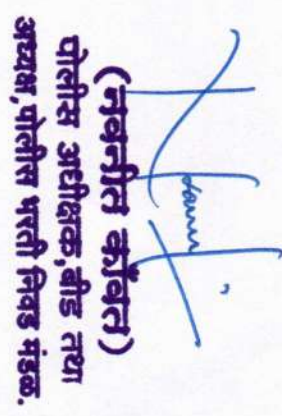 (नवनीत काँवत)
पोलीस अधीक्षक,बीड तथा
अध्यक्ष,पोलीस भरती निवड मंडळ.